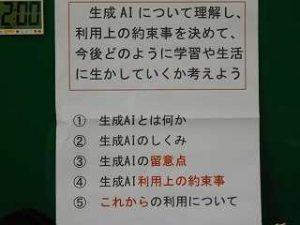 2:00
生成AIについて理解し、
利用上の約束事を決めて、
今後どのように学習や生活
に生かしていくか考えよう
① 生成AIとは何か
② 生成AIのしくみ
③ 生成AIの留意点
④ 生成AI利用上の約束事
⑤ これからの利用について